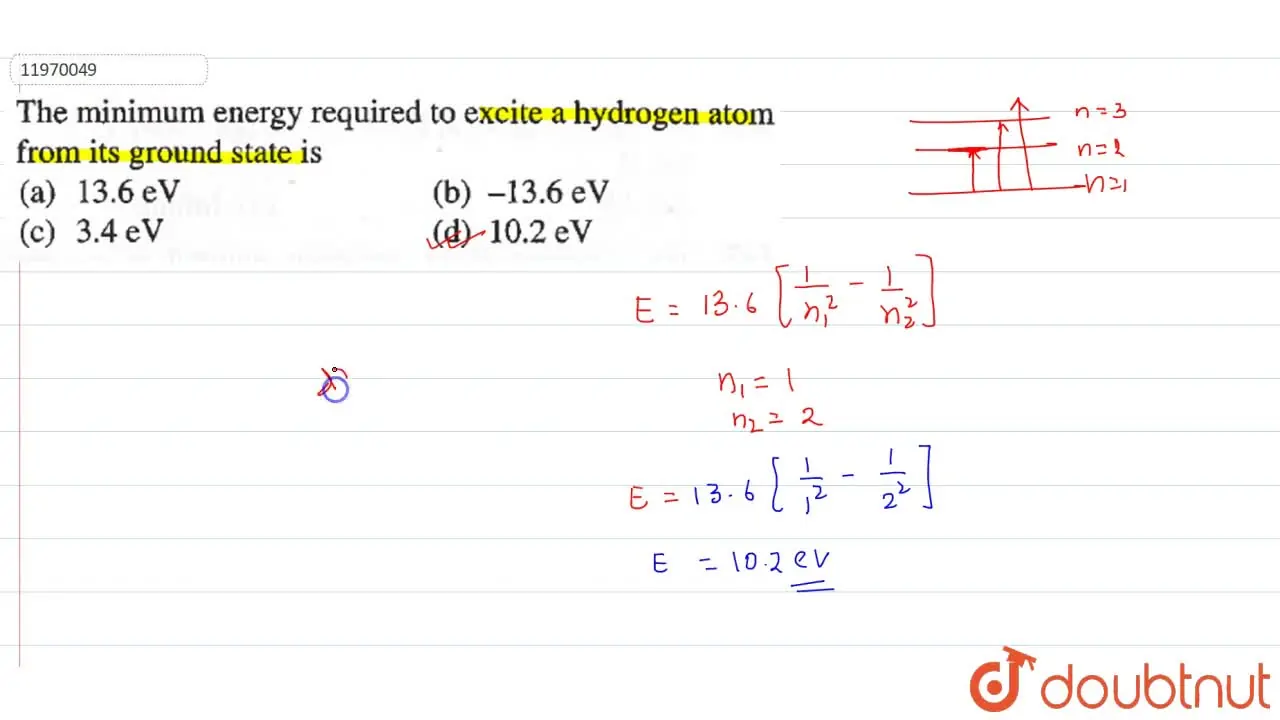 11970049
The minimum energy required to excite a hydrogen atom
from its ground state is
(a) 13.6 eV (b) –13.6 eV
(c) 3.4 eV (d) 10.2 eV
n = 3
n = 2
n = 1
E = 13.6 [1/n₁² - 1/n₂²]
n₁ = 1
n₂ = 2
E = 13.6 [1/1² - 1/2²]
E = 10.2 eV
doubtnut